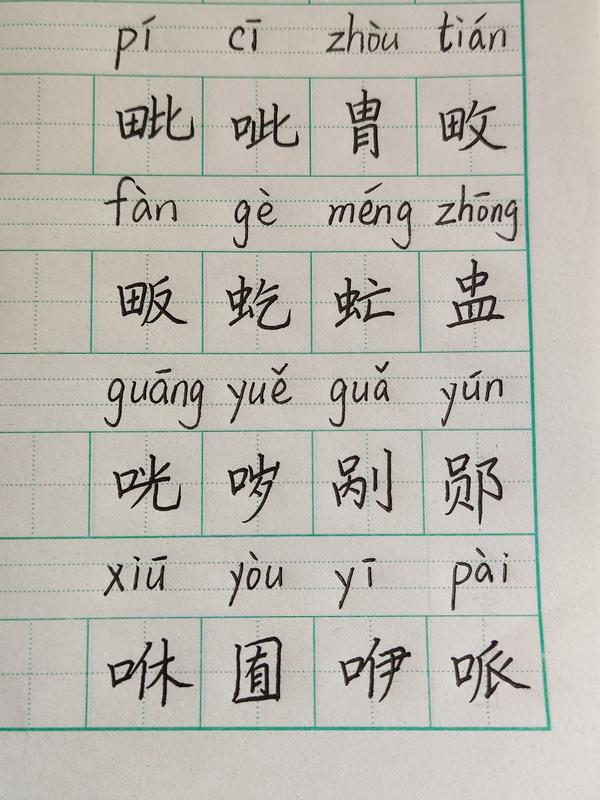 pí cī zhòu tián
毗 呲 胄 畋
fàn gè méng zhōng
畈 虼 虻 盅
guāng yuě guǎ yún
咣 哕 剐 郧
xiū yòu yī pài
咻 囿 咿 哌